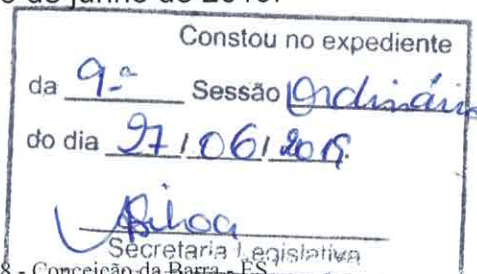 de junho de 2019.
Constou no expediente
da 9ª Sessão Ordinária
do dia 27/06/2019.
Secretaria Legislativa
8 - Conceição da Barra - ES